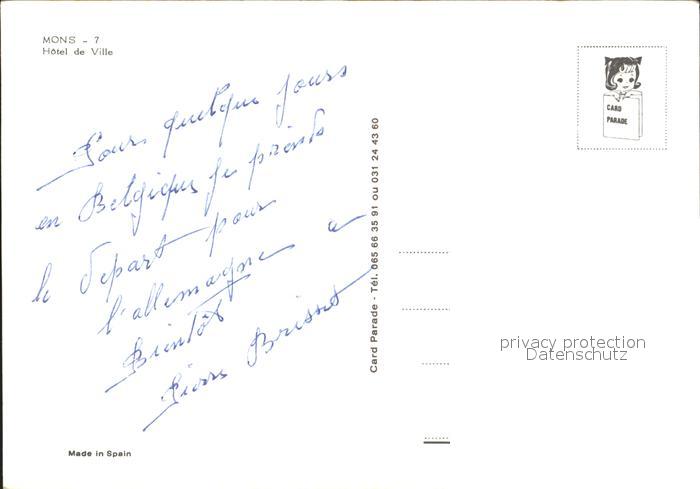 MONS - 7
Hôtel de Ville
Pour quelques jours
en Belgique je prends
le départ pour
l'allemagne a
Bientôt
Pierre Brisset
Card Parade - Tél. 065 66 35 91 ou 031 24 43 60
CARD
PARADE
privacy protection
Datenschutz
Made in Spain